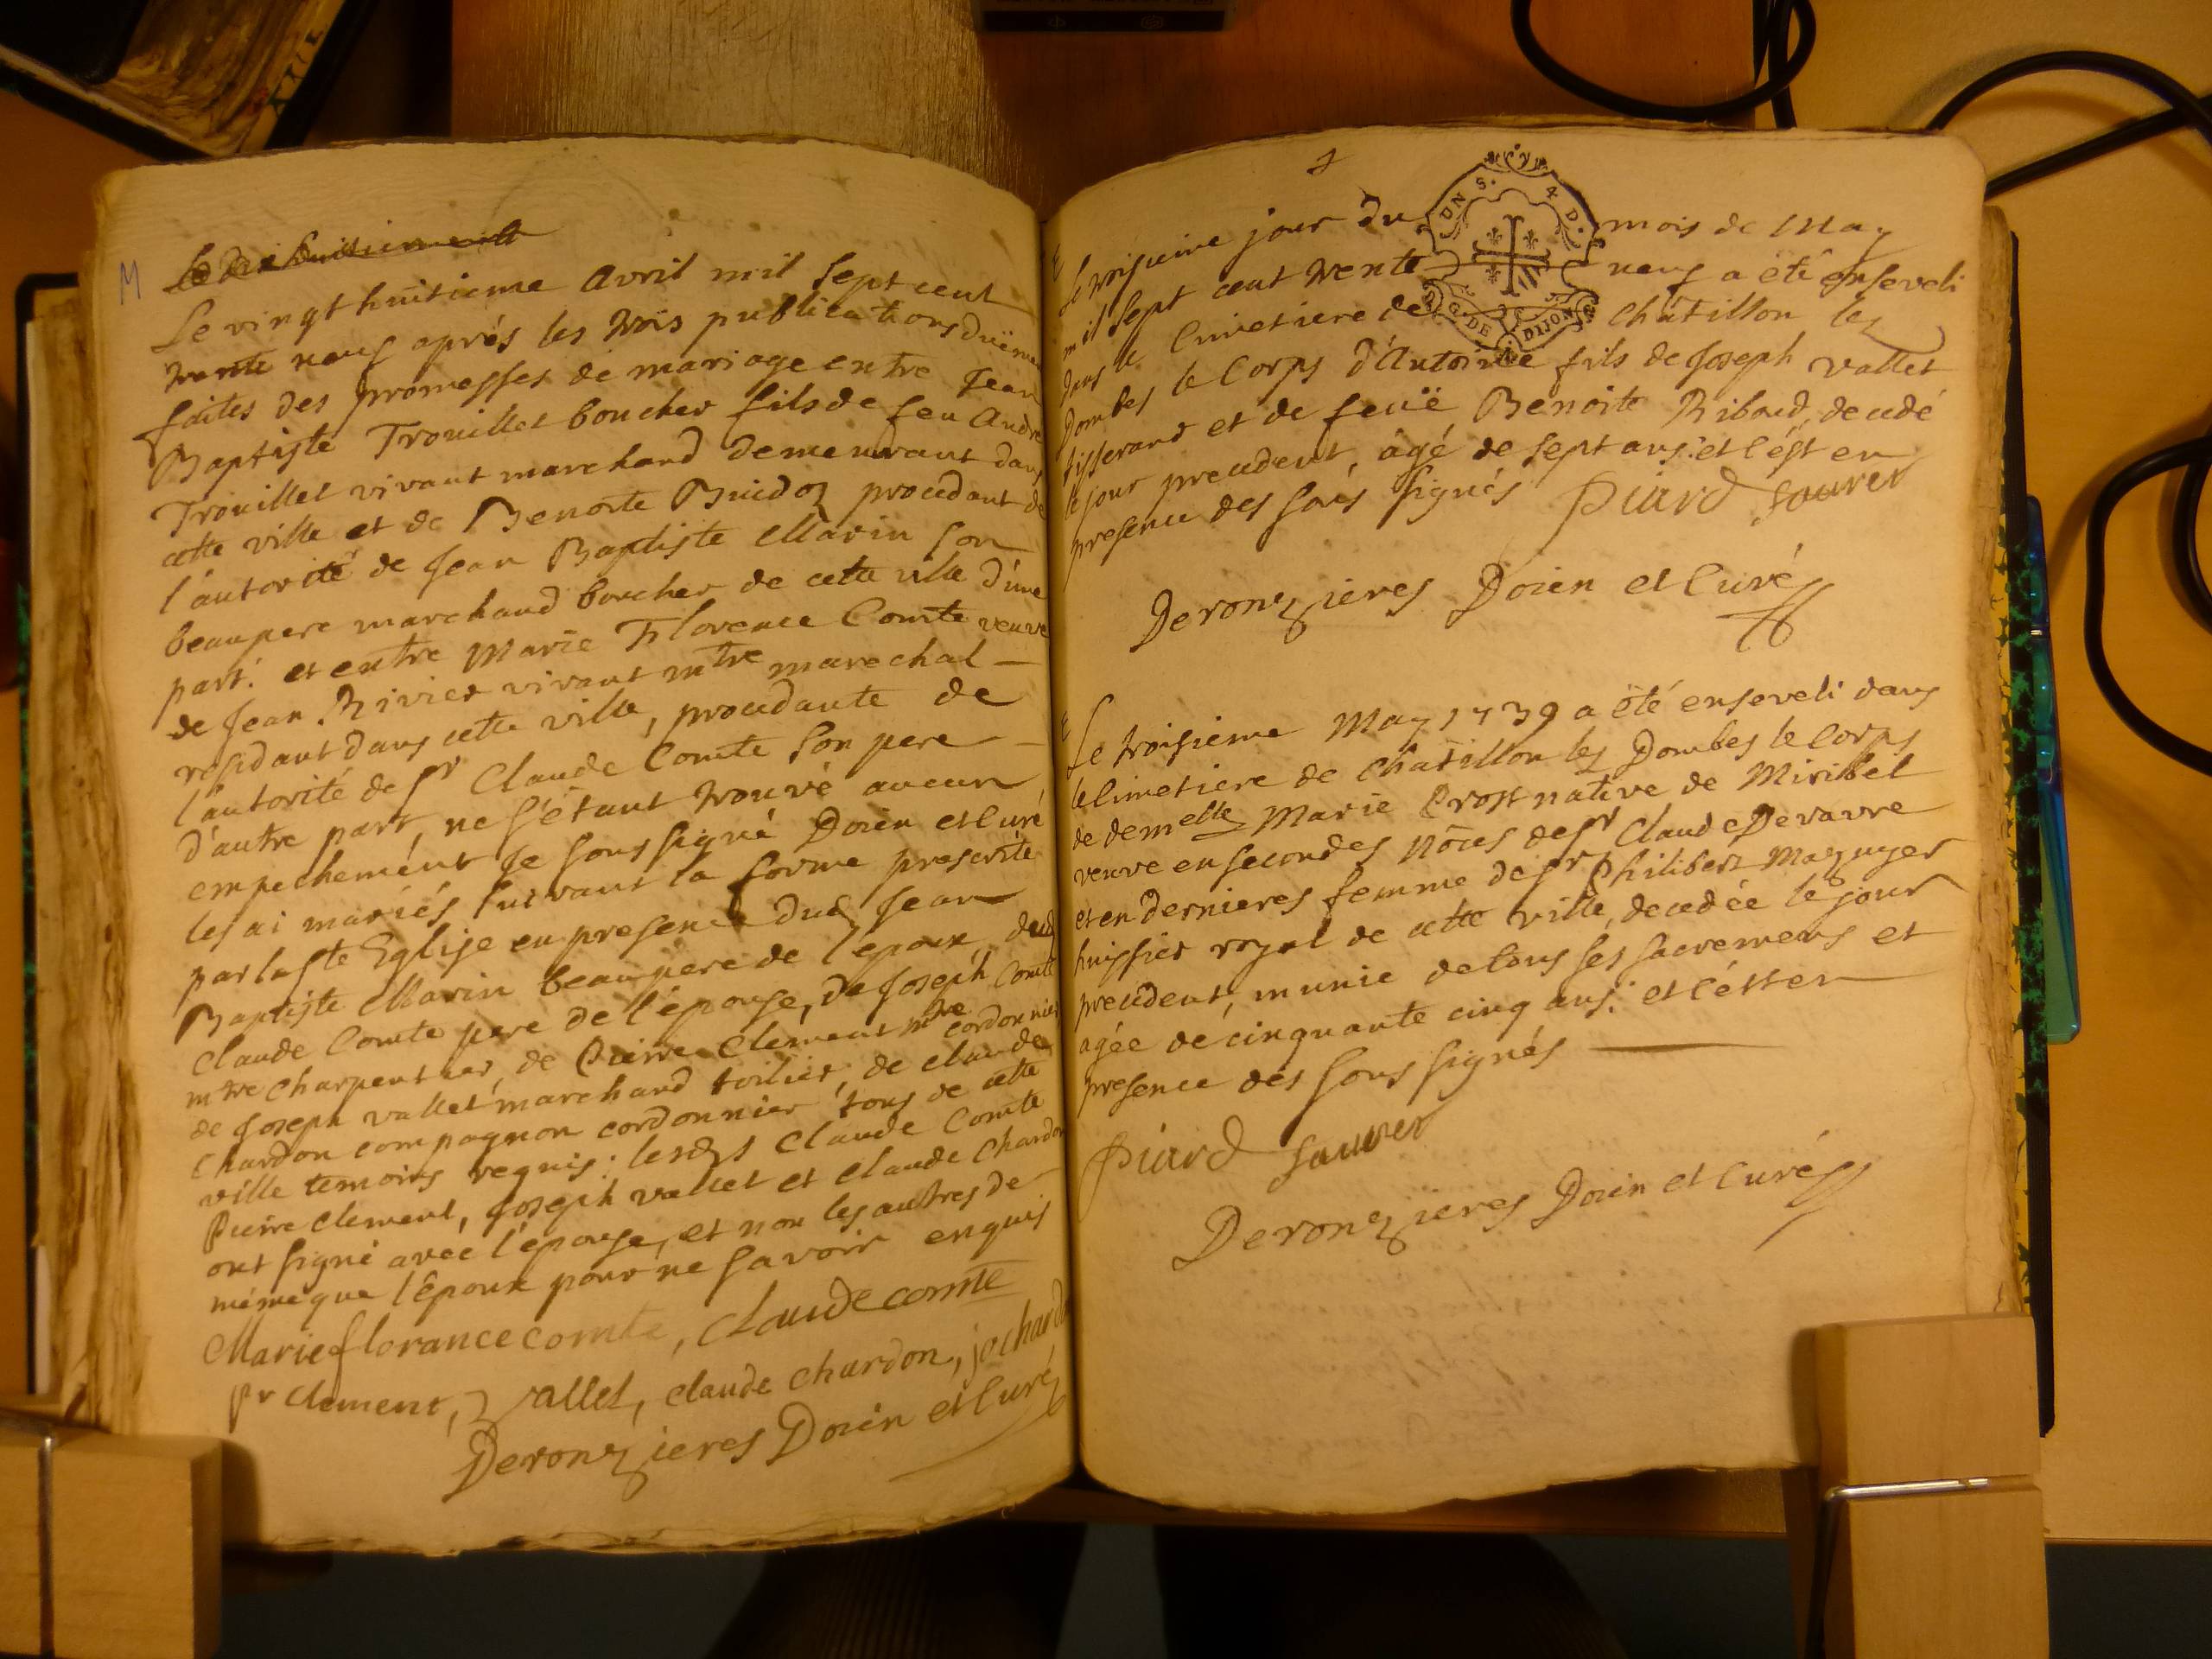 M
Le vingt huitieme Avril mil sept cent
trente neuf aprés les trois publications duëmen
faites des promesses de mariage entre Jean
Baptiste Trouillet boucher fils de feu André
Trouillet vivant marchand demeurant dans
cette ville et de Benoite Buidoz procedant de
l'autorité de Jean Baptiste Marin son
beaupere marchand boucher de cette ville d'une
part: et entre Marie Florence Comte veuve
de Jean Rivier vivant mtre marechal
residant dans cette ville, procedante de
l'autorité de sr Claude Comte son pere
d'autre part, ne s'étant trouvé aucun
empechement Je sous signé Doien et Curé
les ai mariés suivant la forme prescrite
par la ste Eglise en presence dud Jean
Baptiste Marin beaupere de l'epoux dud
Claude Comte pere de l'épouse, de Joseph Comte
mtre charpentier, de Pierre Clément mtre cordonnier
de Joseph vallet marchand toilier, de claude
Chardon compagnon cordonnier tous de cette
ville temoins requis: lesdts Claude Comte
Pierre Clement, Joseph vallet et Claude Chardon
ont signé avec l'épouse, et non les autres de
même que l'Epoux pour ne savoir enquis
Marie florance comte, Claude comte
pr Clement, J vallet, claude chardon, jo chardon
Deronzieres Doien et Curé
Le troisieme jour du mois de May
mil sept cent trente neuf a été enseveli
dans le Cimetiere de Châtillon les
Dombes le Corps d'Antoine fils de Joseph vallet
tisserand et de feuë Benoite Ribaud, decedé
le jour precedent, âgé de sept ans: et c'ést en
presence des sous signés Piard saurer
Deronzieres Doien et Curé
UN S. 4 D.
G. DE DIJON
Le troisieme May 1739 a été enseveli dans
le Cimetiere de Châtillon les Dombes le Corps
de demelle Marie Prost native de Miribel
veuve en secondes nôces de sr Claude Devavre
et en dernieres femme de sr Philibert Mazuyer
huissier royal de cette ville, decedée le jour
precedent, munie de tous ses sacremens et
agée de cinquante cinq ans: et c'ést en
presence des sous signés
Piard saurer
Deronzieres Doien et Curé